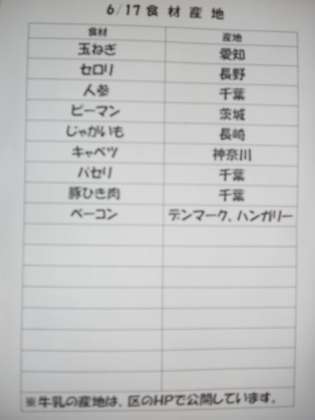 6/17 食材産地
食材 産地
玉ねぎ 愛知
セロリ 長野
人参 千葉
ピーマン 茨城
じゃがいも 長崎
キャベツ 神奈川
パセリ 千葉
豚ひき肉 千葉
ベーコン デンマーク、ハンガリー
※牛乳の産地は、区のHPで公開しています。